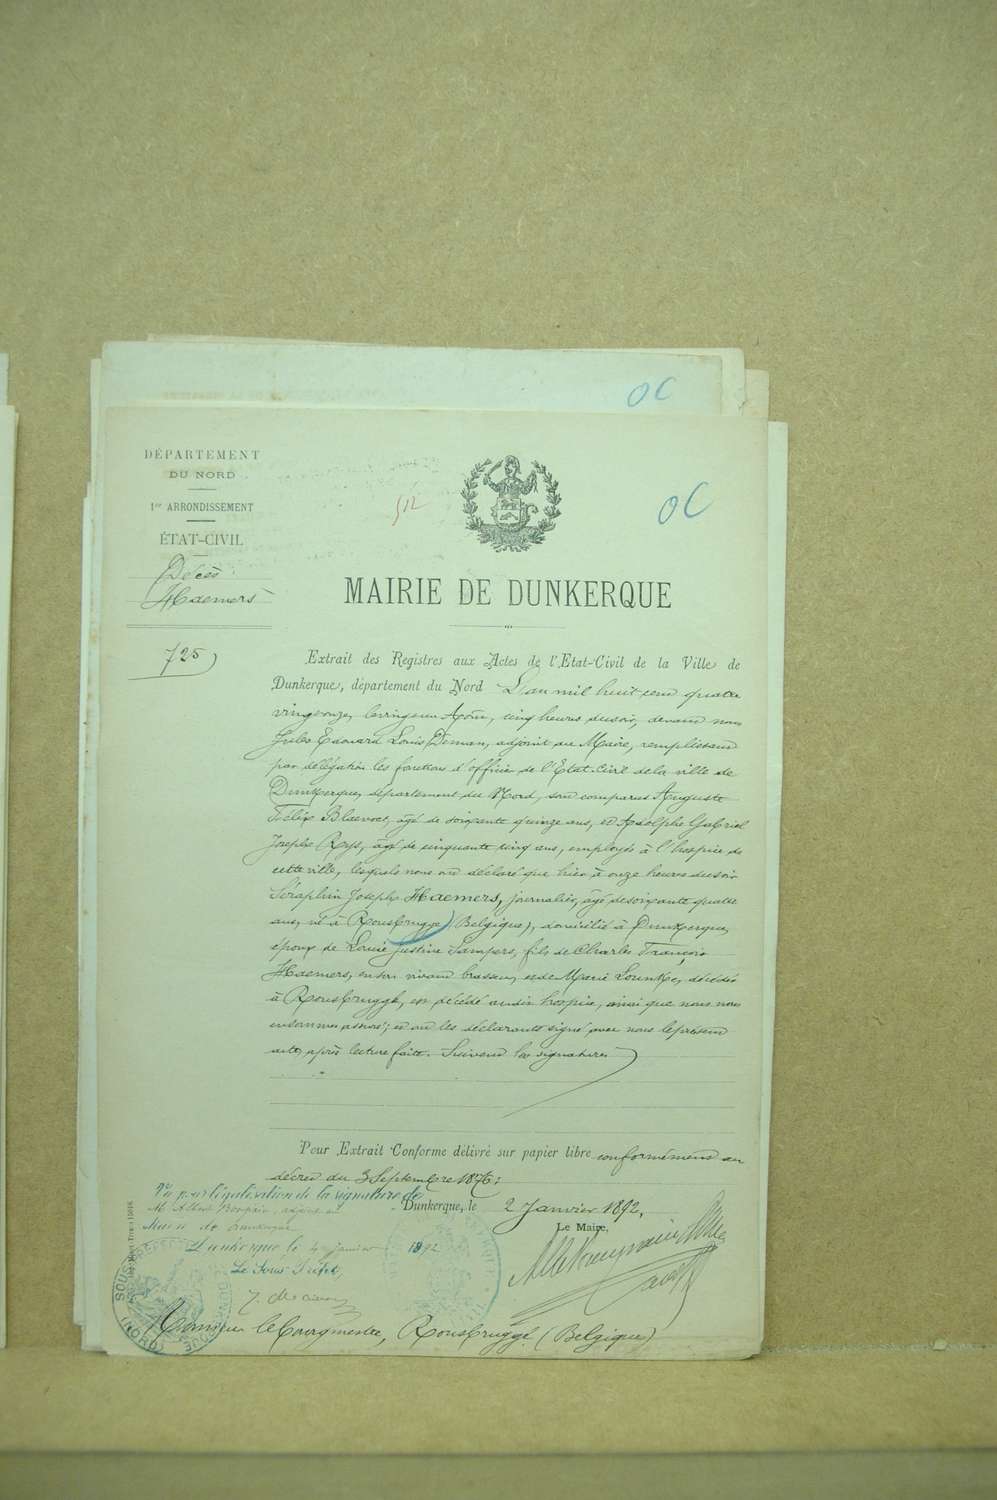 OC
DÉPARTEMENT
DU NORD
1er ARRONDISSEMENT
ÉTAT-CIVIL
Décès
Haemers
725
512
OC
MAIRIE DE DUNKERQUE
Extrait des Registres aux Actes de l'Etat-Civil de la Ville de
Dunkerque, département du Nord L'an mil huit cent quatre
vingt onze, le vingt un Août, cinq heures du soir, devant nous
Jules Edouard Louis Deman, adjoint au Maire, remplissant
par délégation les fonctions d'officier de l'Etat-Civil de la ville de
Dunkerque, département du Nord, sont comparus Auguste
Félix Blaevoet, âgé de soixante quinze ans, et Adolphe Gabriel
Joseph Rys, âgé de cinquante cinq ans, employés à l'hospice de
cette ville, lesquels nous ont déclaré que hier à onze heures du soir
Séraphin Joseph Haemers, journalier, âgé de soixante quatre
ans, né à Rousbrugge (Belgique), domicilié à Dunkerque,
époux de Louise Justine Sampers, fils de Charles François
Haemers, en son vivant brasseur, et de Marie Lounke, décédés
à Rousbrugge, est décédé audit hospice, ainsi que nous nous
en sommes assuré; et ont les déclarants signé avec nous le présent
acte, après lecture faite. Suivent les signatures
Pour Extrait Conforme délivré sur papier libre conformément au
décret du 3 Septembre 1876:
Dunkerque, le 2 Janvier 1892,
Le Maire,
Vu pour légalisation de la signature de
M. Albert adjoint au
Maire de Dunkerque
Dunkerque le 4 janvier 1892
Le Sous-Préfet,
Monsieur le Bourgmestre, Rousbrugge (Belgique)